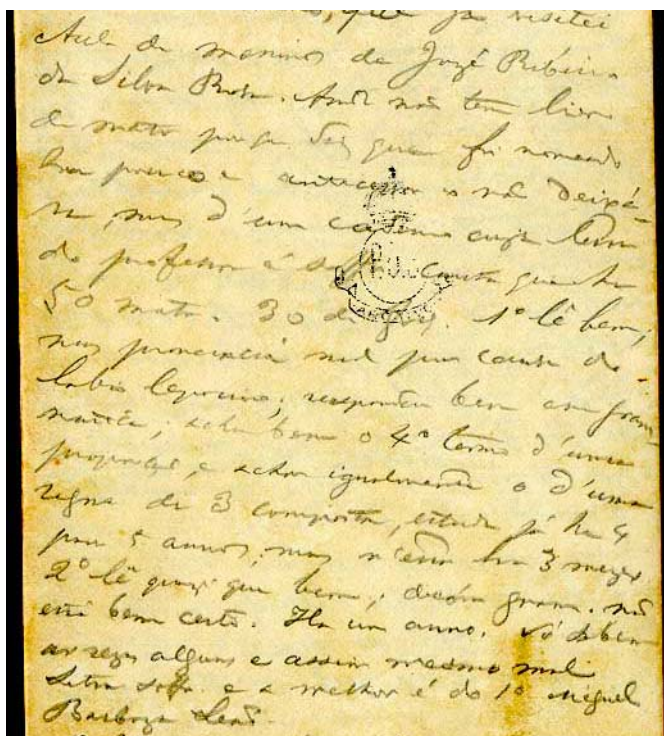 que já visitei
Aula de meninos de José Ribeiro
da Silva Rosa. Ainda não tem livro
de matr porque diz que foi nomeado
ha pouco e antecessor o não
mas d'um caderno cuja letra
do professor é soff. Consta que ha
50 matr. 30 de freq. 1º lê bem,
mas pronuncia mal por causa do
labio leporino; respondeu bem em gram
matica; achou bem o 4º termo d'uma
proporção, e achou igualmente o d'uma
regra de 3 composta, estuda já ha 4
para 5 annos, mas n'esta ha 3 mezes
2º lê quazi que bem; decóra gram. não
está bem certo. Ha um anno. Só sabem
as rezas alguns e assim mesmo mal
Letra soffr. e a melhor é do 1º Miguel
Barboza Leão.